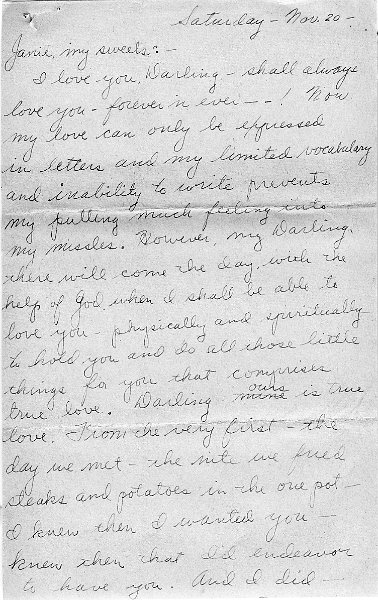 Saturday - Nov. 20 -
Janie, my sweets: -
I love you, Darling - shall always
love you - forever 'n ever - - ! Now
my love can only be expressed
in letters and my limited vocabulary
and inability to write prevents
my putting much feeling into
my missles. However, my Darling,
there will come the day, with the
help of God, when I shall be able to
love you - physically and spiritually
to hold you and do all those little
things for you that comprises
true love. Darling ours is true
love. From the very first - the
day we met - the nite we fried
steaks and potatoes in the one pot -
I knew then I wanted you -
knew then that I'd endeavor
to have you. And I did -